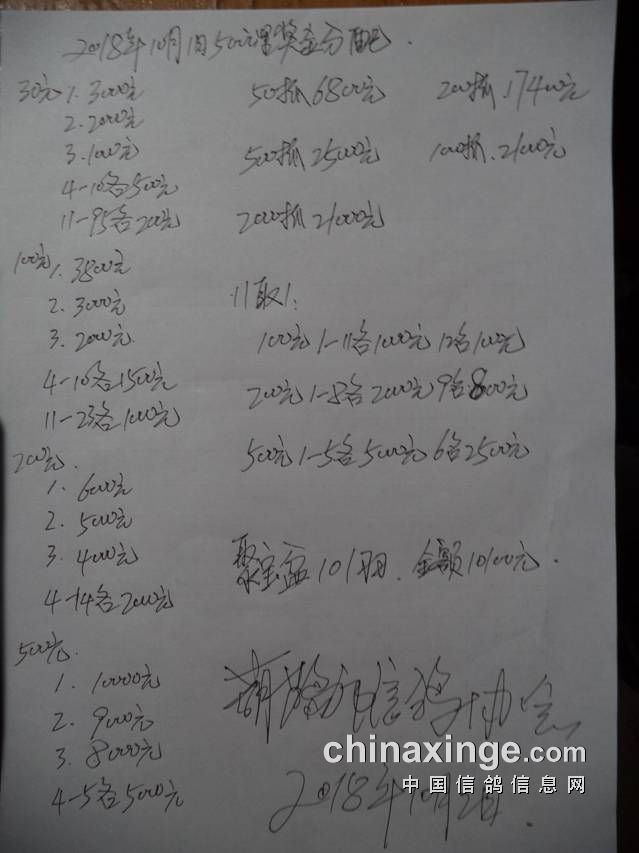 2018年10月1日500公里奖金分配.
30元 1. 3000元
2. 2000元
3. 1000元
4-10各500元
11-95各200元
100元 1. 3800元
2. 3000元
3. 2000元
4-10各1500元
11-23各1000元
200元.
1. 6000元
2. 5000元
3. 4000元
4-14各2000元
500元.
1. 10000元
2. 9000元
3. 8000元
4-5各5000元
50抓6800元 200抓.17400元
500抓25000元 1000抓.21000元
2000抓21000元
11取1:
100元1-11各1000元 12名100元
200元1-8各2000元 9名800元
500元1-5各5000元 6名2500元
聚宝盆101羽. 金额10100元.
信鸽协会
2018年10月
chinaxinge.com
中国信鸽信息网